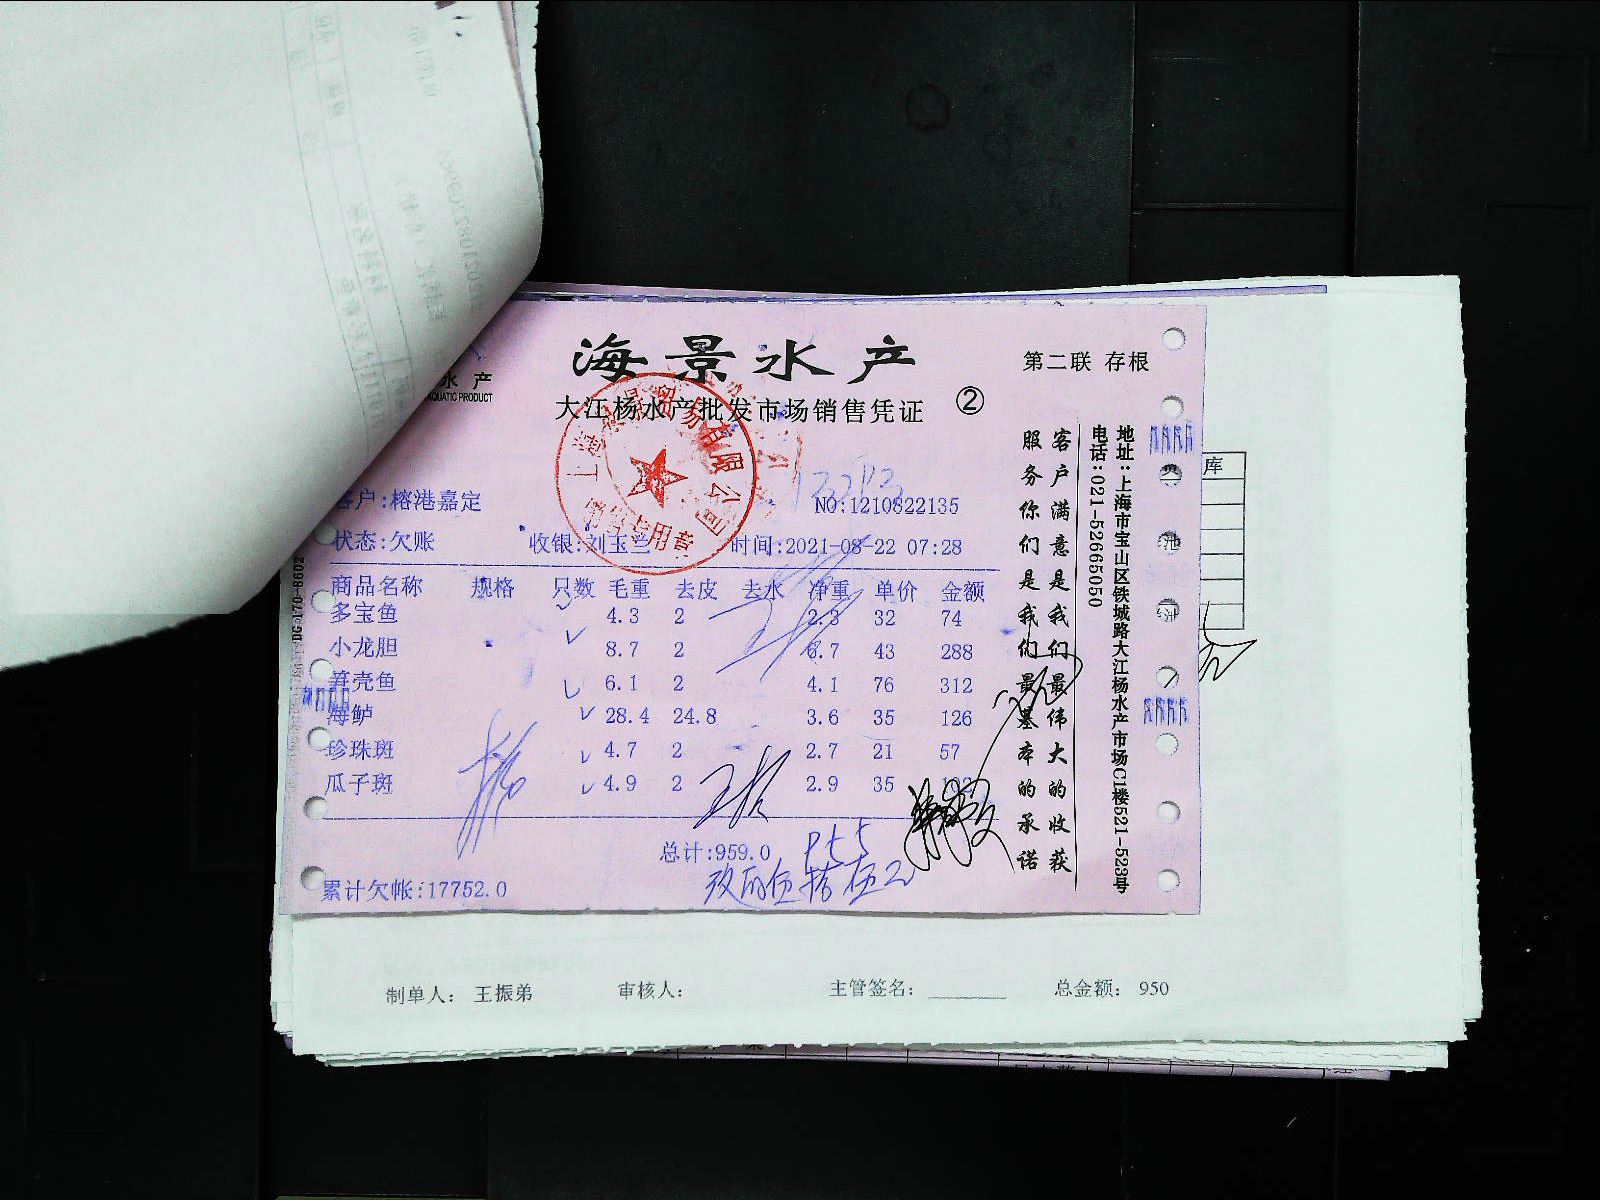 海景水产
第二联 存根
水产
AQUATIC PRODUCT
大江杨水产批发市场销售凭证 ②
客户:榕港嘉定
NO:1210822135
状态:欠账 收银:刘玉兰 时间:2021-08-22 07:28
商品名称 规格 只数 毛重 去皮 去水 净重 单价 金额
多宝鱼 4.3 2 2.3 32 74
小龙胆 8.7 2 6.7 43 288
笋壳鱼 6.1 2 4.1 76 312
海鲈 28.4 24.8 3.6 35 126
珍珠斑 4.7 2 2.7 21 57
瓜子斑 4.9 2 2.9 35 102
总计:959.0
累计欠帐:17752.0
客户满意是我们最伟大的收获
服务你们是我们最基本的承诺
地址:上海市宝山区铁城路大江杨水产市场C1楼521-523号
电话:021-52665050
DG-170-8602
库
制单人: 王振弟 审核人: 主管签名: 总金额: 950